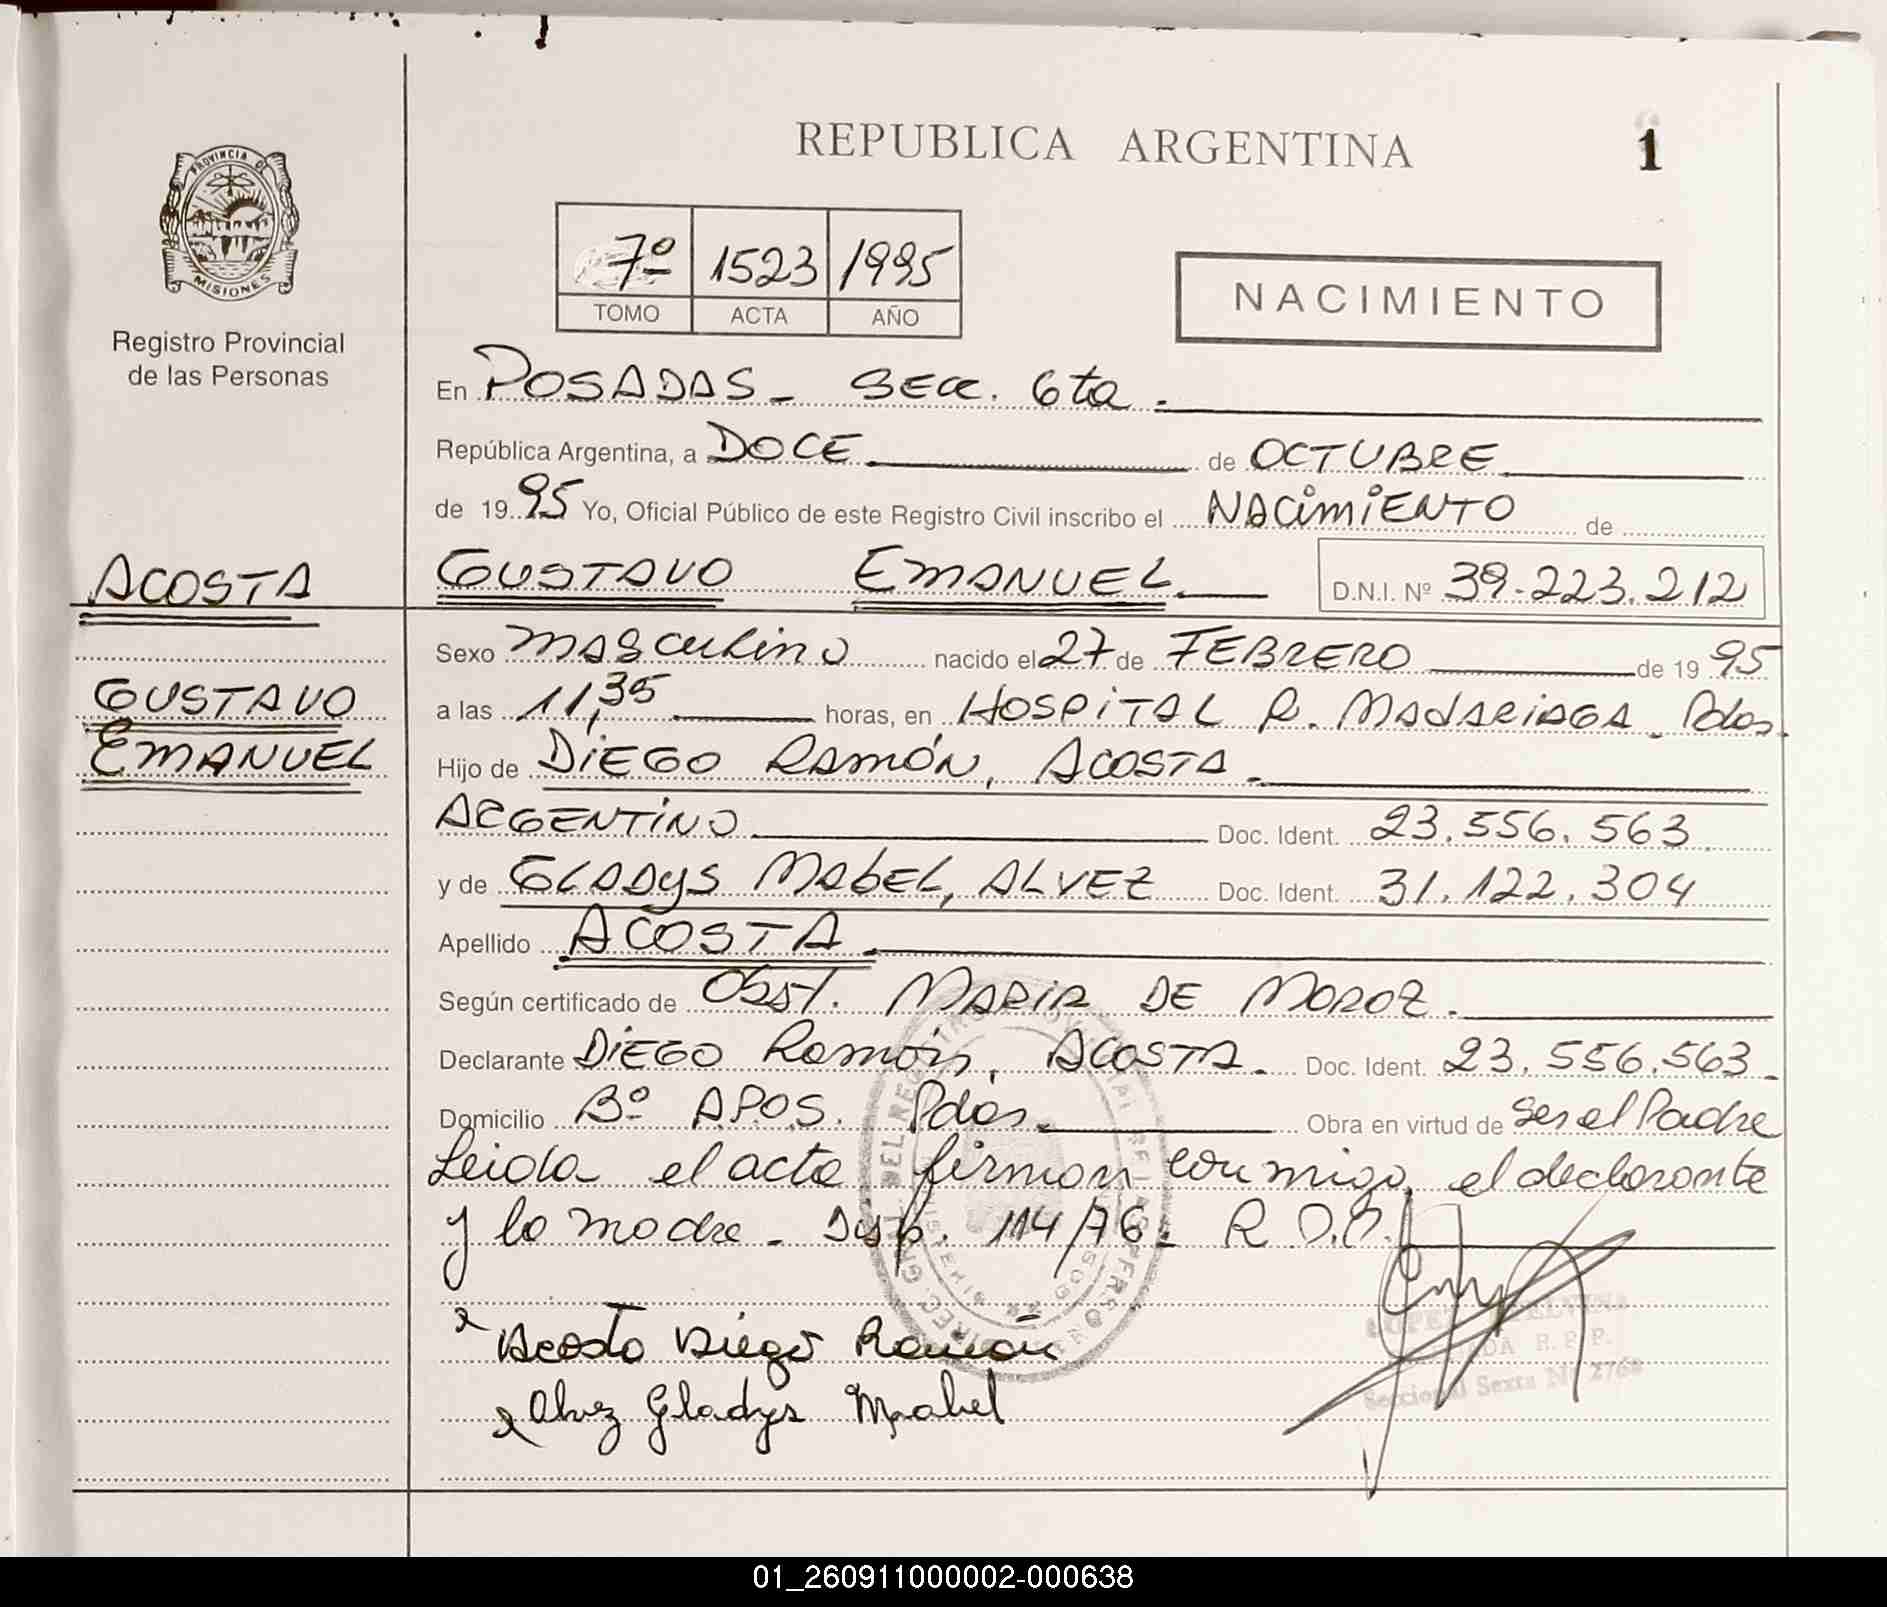 REPUBLICA ARGENTINA
1
PROVINCIA DE
MISIONES
Registro Provincial
de las Personas
7º 1523 1995
TOMO ACTA AÑO
NACIMIENTO
En POSADAS - SECC. 6ta.
República Argentina, a DOCE de OCTUBRE
de 1995 Yo, Oficial Público de este Registro Civil inscribo el NACIMIENTO de
ACOSTA
GUSTAVO EMANUEL D.N.I. Nº 39.223.212
GUSTAVO
EMANUEL
Sexo MASCULINO nacido el 27 de FEBRERO de 1995
a las 11,35 horas, en HOSPITAL R. MADARIAGA - Pdas.
Hijo de DIEGO RAMÓN, ACOSTA.
ARGENTINO Doc. Ident. 23.556.563
y de GLADYS MABEL, ALVEZ Doc. Ident. 31.122.304
Apellido ACOSTA.
Según certificado de Obst. MARIA DE MOROZ.
Declarante DIEGO Ramón, ACOSTA. Doc. Ident. 23.556.563.
Domicilio Bº A.P.O.S. Pdas. Obra en virtud de ser el Padre
Leida el acta firman conmigo, el declarante
y la madre - Disp. 114/76 - R.D.
Acosta Diego Ramón
Alvez Gladys Mabel
LOPEZ
R. P. P.
Seccional Sexta Nº 2768
01_260911000002-000638